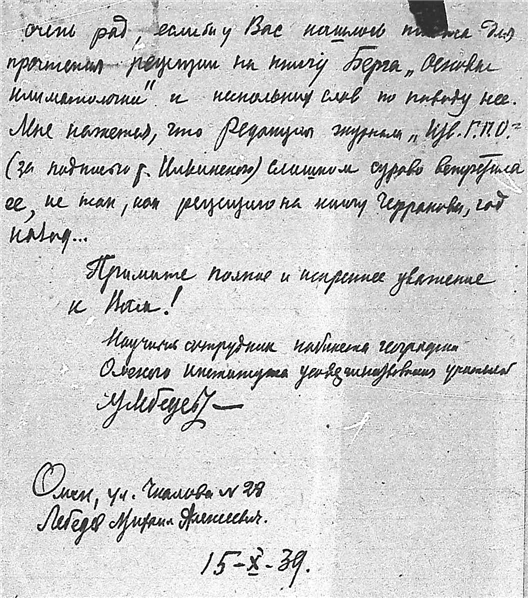 очень рад, еслибы у Вас нашлось места для
прочтения рецензии на книгу Берга „Основы
климатологии" и несколько слов по поводу нее.
Мне кажется, что Редакция журнала „Изв. Г.Г.О."
(за подписью г. ) слишком сурово встретила
ее, не так, как рецензию на книгу , год
назад...
Примите полное и искреннее уважение
к Вам!
Научный сотрудник кабинета географии
Омского института усовершенствования учителей
МЛебедев
Омск, ул. Чкалова № 28
Лебедев Михаил Алексеевич.
15-X-39.